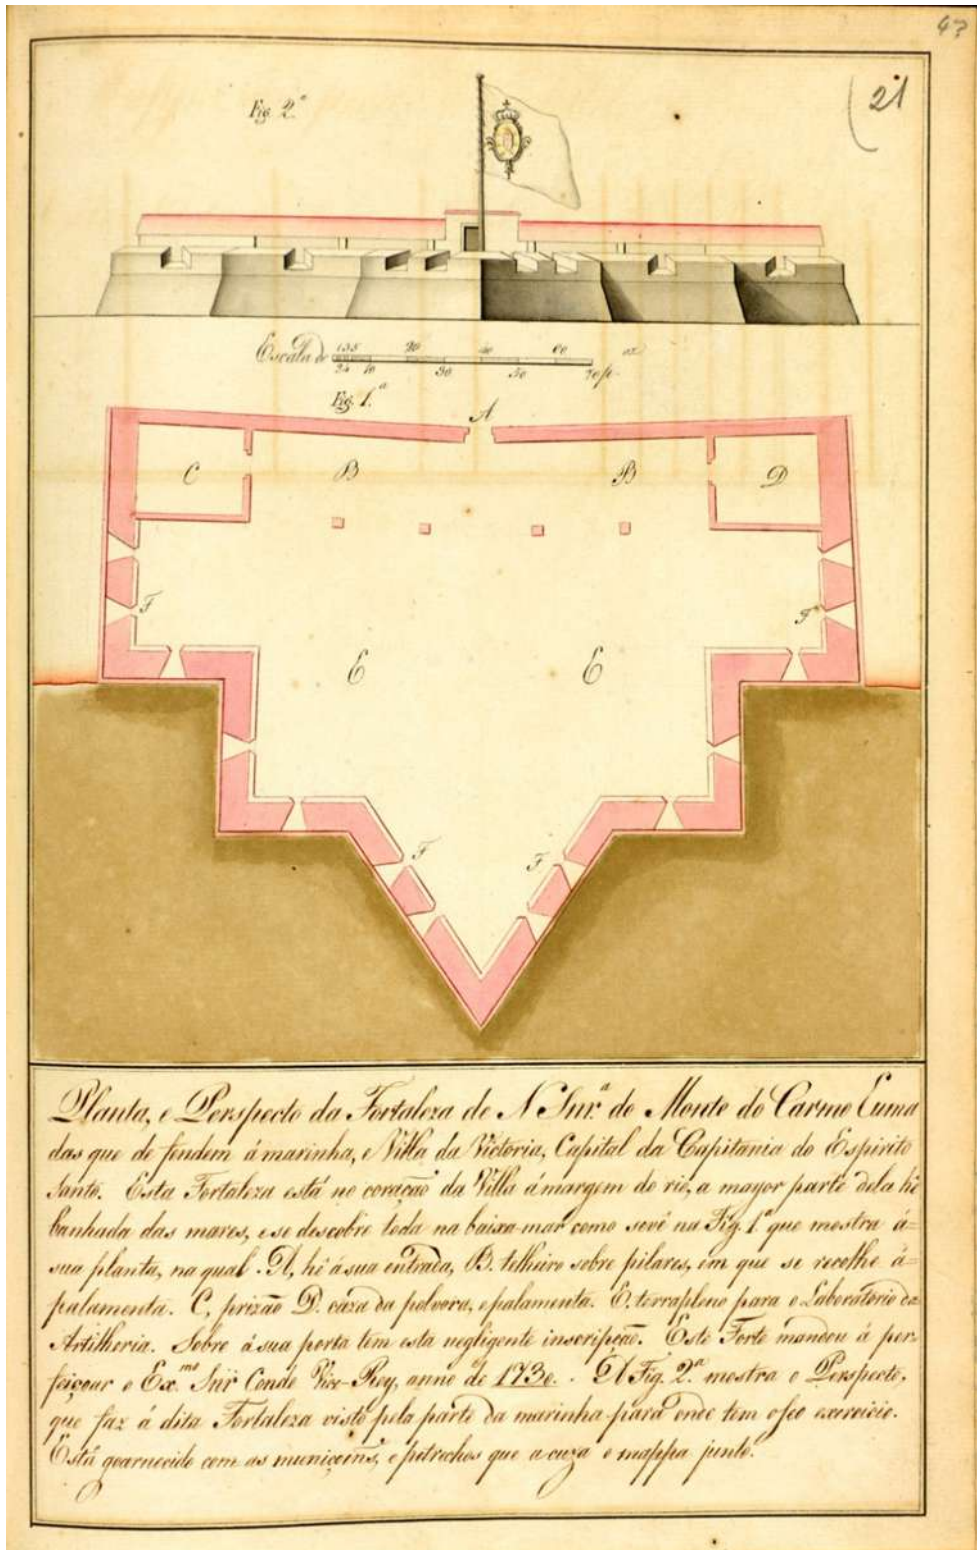 47
21
Fig. 2.ª
Escala de 135 20 40 60
24 10 30 50 70 p.
Fig. 1.ª
A
C B B D
F F
E E
F F
Planta, e Perspecto da Fortaleza de N Snr.ª do Monte do Carmo huma
das que defendem á marinha, e Villa da Victoria, Capital da Capitania do Espirito
Santo. Esta Fortaleza está no coração da Villa ámargem do rio, a mayor parte dela hé
banhada das mares, e se descobre toda na baixa-mar como sevê na Fig. 1.ª que mostra á-
sua planta, na qual. A, hé ásua entrada, B. telheiro sobre pilares, em que se recolhe á-
palamenta. C, prizão D. caza da polvora, e palamenta. E. terrapleno para o Laboratorio da
Artilheria. Sobre ásua porta tem esta negligente inscripção. Este Forte mandou á per-
feiçoar o Ex.mo Snr Conde Vice-Rey, anno de 1730. . A Fig. 2.ª mostra o Perspecto,
que faz á dita Fortaleza visto pela parte da marinha para onde tem oseo exercicio.
Está goarnecido com as municoens, e petrechos que acuza o mappa junto.